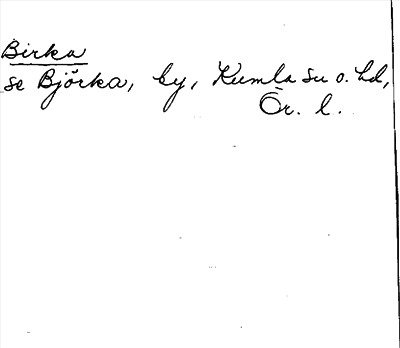 Birka
se Björka, by, Kumla sn o. hd,
Ör. l.